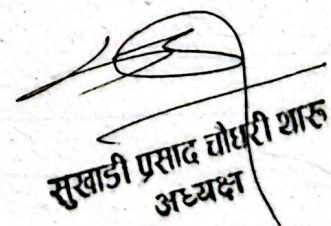 सुखाडी प्रसाद चौधरी थारू
अध्यक्ष